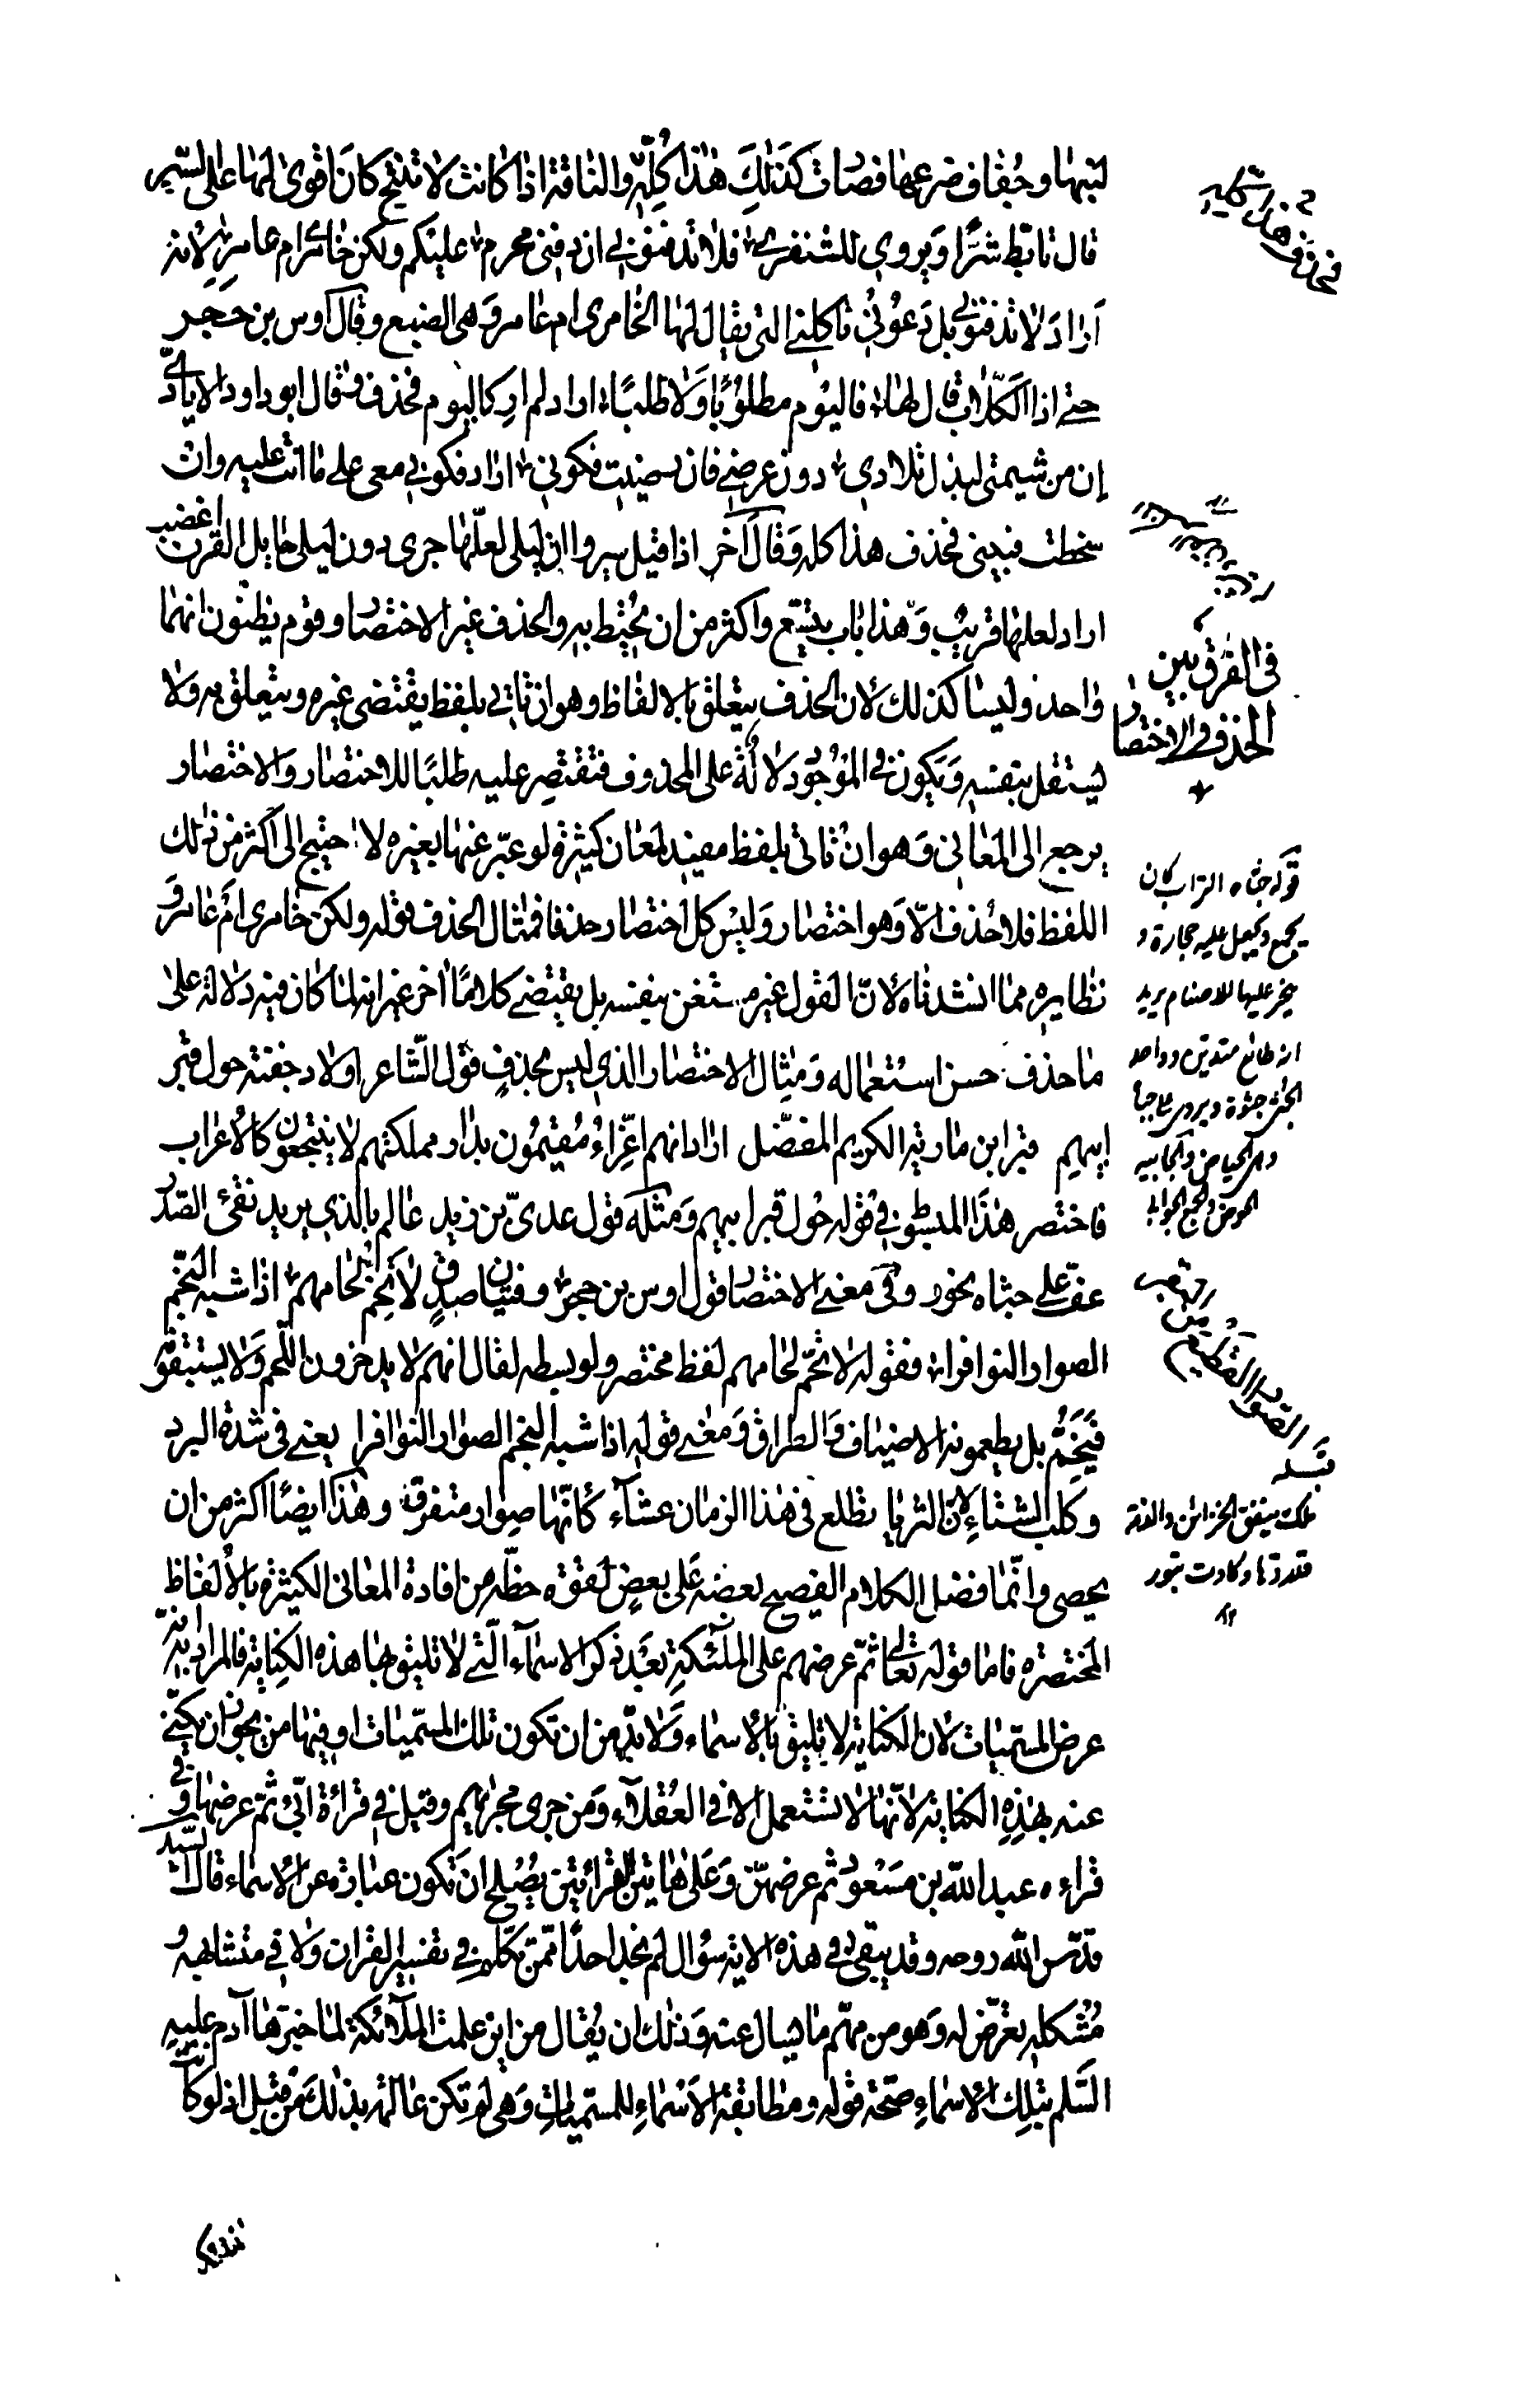 لبنها وجفاف ضرعها فصارت كذلك هذا كله والناقة اذا كانت لا تنتج كان اقوى لها على السير
قال تابط شرًّا ويروى للشنفرى فلا تدفنونى ان دفنى محرم عليكم ولكن خامرى ام عامر لانه
اراد لا تدفنونى بل دعونى تاكلنى التى يقال لها خامرى ام عامر وهى الضبع وقال اوس بن حجر
حتى اذا الكلاب قال لها فاليوم مطلوبًا ولا طلبًا اراد لم ار كاليوم فحذف وقال ابو داود الايادى
إن من شيمتى لبذل تلادى دون عرضى فان رضيت فكونى اراد فكونى معى على ما انت عليه وان
سخطت فبينى فحذف هذا كله وقال آخر اذا قيل سيروا ان ليلى لعلها جرى دون ليلى مايل القرن اعضب
اراد لعلها قريب وهذا باب يتسع واكثر من ان يحيط به والحذف غير الاختصار وقوم يظنون انهما
واحد وليسا كذلك لان الحذف يتعلق بالالفاظ وهو ان تاتى بلفظ يقتضى غيره ويتعلق به ولا
يستقل بنفسه ويكون فى الموجود دلالة على المحذوف فتقتصر عليه طلبًا للاختصار والاختصار
يرجع الى المعانى وهو ان تاتى بلفظ مفيد لمعان كثيرة ولو عبّر عنها بغيره لاحتيج الى اكثر من ذلك
اللفظ فلا حذف الّا وهو اختصار وليس كل اختصار حذفا فمثال الحذف قوله ولكن خامرى ام عامر و
نظايره مما انشدناه لان القول غير مستغن بنفسه بل يقتضى كلامًا آخر غير انه لما كان فيه دلالة على
ما حذف حسن استعماله ومثال الاختصار الذى ليس بحذف قول الشاعر اولاد جفنة حول قبر
ابيهم قبر ابن مارية الكريم المفضل اراد انهم اعزاء مقيمون بدار مملكتهم لا ينتجعون كالاعراب
فاختصر هذا المبسوط فى قوله حول قبر ابيهم ومثله قول عدى بن زيد عالم بالذى يريد نقى الصدر
عف على جثاه نحور وفى معنى الاختصار قول اوس بن حجر وفتيان صدق لا تخم لحامهم اذا شبه النجم
الصوار النوافرا فقوله لا تخم لحامهم لفظ مختصر ولو بسطه لقال انهم لا يدخرون اللحم ولا يستبقونه
فيخم بل يطعمونه الاضياف والطراق ومعنى قوله اذا شبه النجم الصوار النوافرا يعنى فى شدة البرد
وكلب الشتاء لان الثريا تطلع فى هذا الزمان عشاء كانها صوار متفرق وهذا ايضًا اكثر من ان
يحصى وانما فضل الكلام الفصيح بعضه على بعض لقوة حظه من افادة المعانى الكثيرة بالالفاظ
المختصرة فاما قوله تعالى ثم عرضهم على الملئكة بعد ذكر الاسماء التى لا تليق بها هذه الكناية فالمراد به انه
عرض المسميات لان الكناية لا تليق بالاسماء ولا بد من ان تكون تلك المسميات او فيها من يجوز ان يكنى
عنه بهذه الكناية لانها لا تستعمل الا فى العقلاء ومن جرى مجراهم وقيل فى قراءة ابى ثم عرضها وفى
قراءه عبد الله بن مسعود ثم عرضهن وعلى هاتين القراءتين يصلح ان تكون عبارة عن الاسماء قال السيد
قدس الله روحه وقد بقى فى هذه الاية سؤال لم نجد احدًا ممن تكلم فى تفسير القران ولا فى متشابهه و
مشكله تعرض له وهو من مهم ما يسال عنه وذلك ان يقال من اين علمت الملائكة لما خبرها آدم عليه
السلم بتلك الاسماء صحة قوله ومطابقة الاسماء للمسميات وهى لم تكن عالمة بذلك من قبل اذ لو كانت
فى الفرق بين
الحذف والاختصار
قوله جثاه التراب كان
يجمع ويجعل عليه حجارة و
ينحر عليها للاصنام يريد